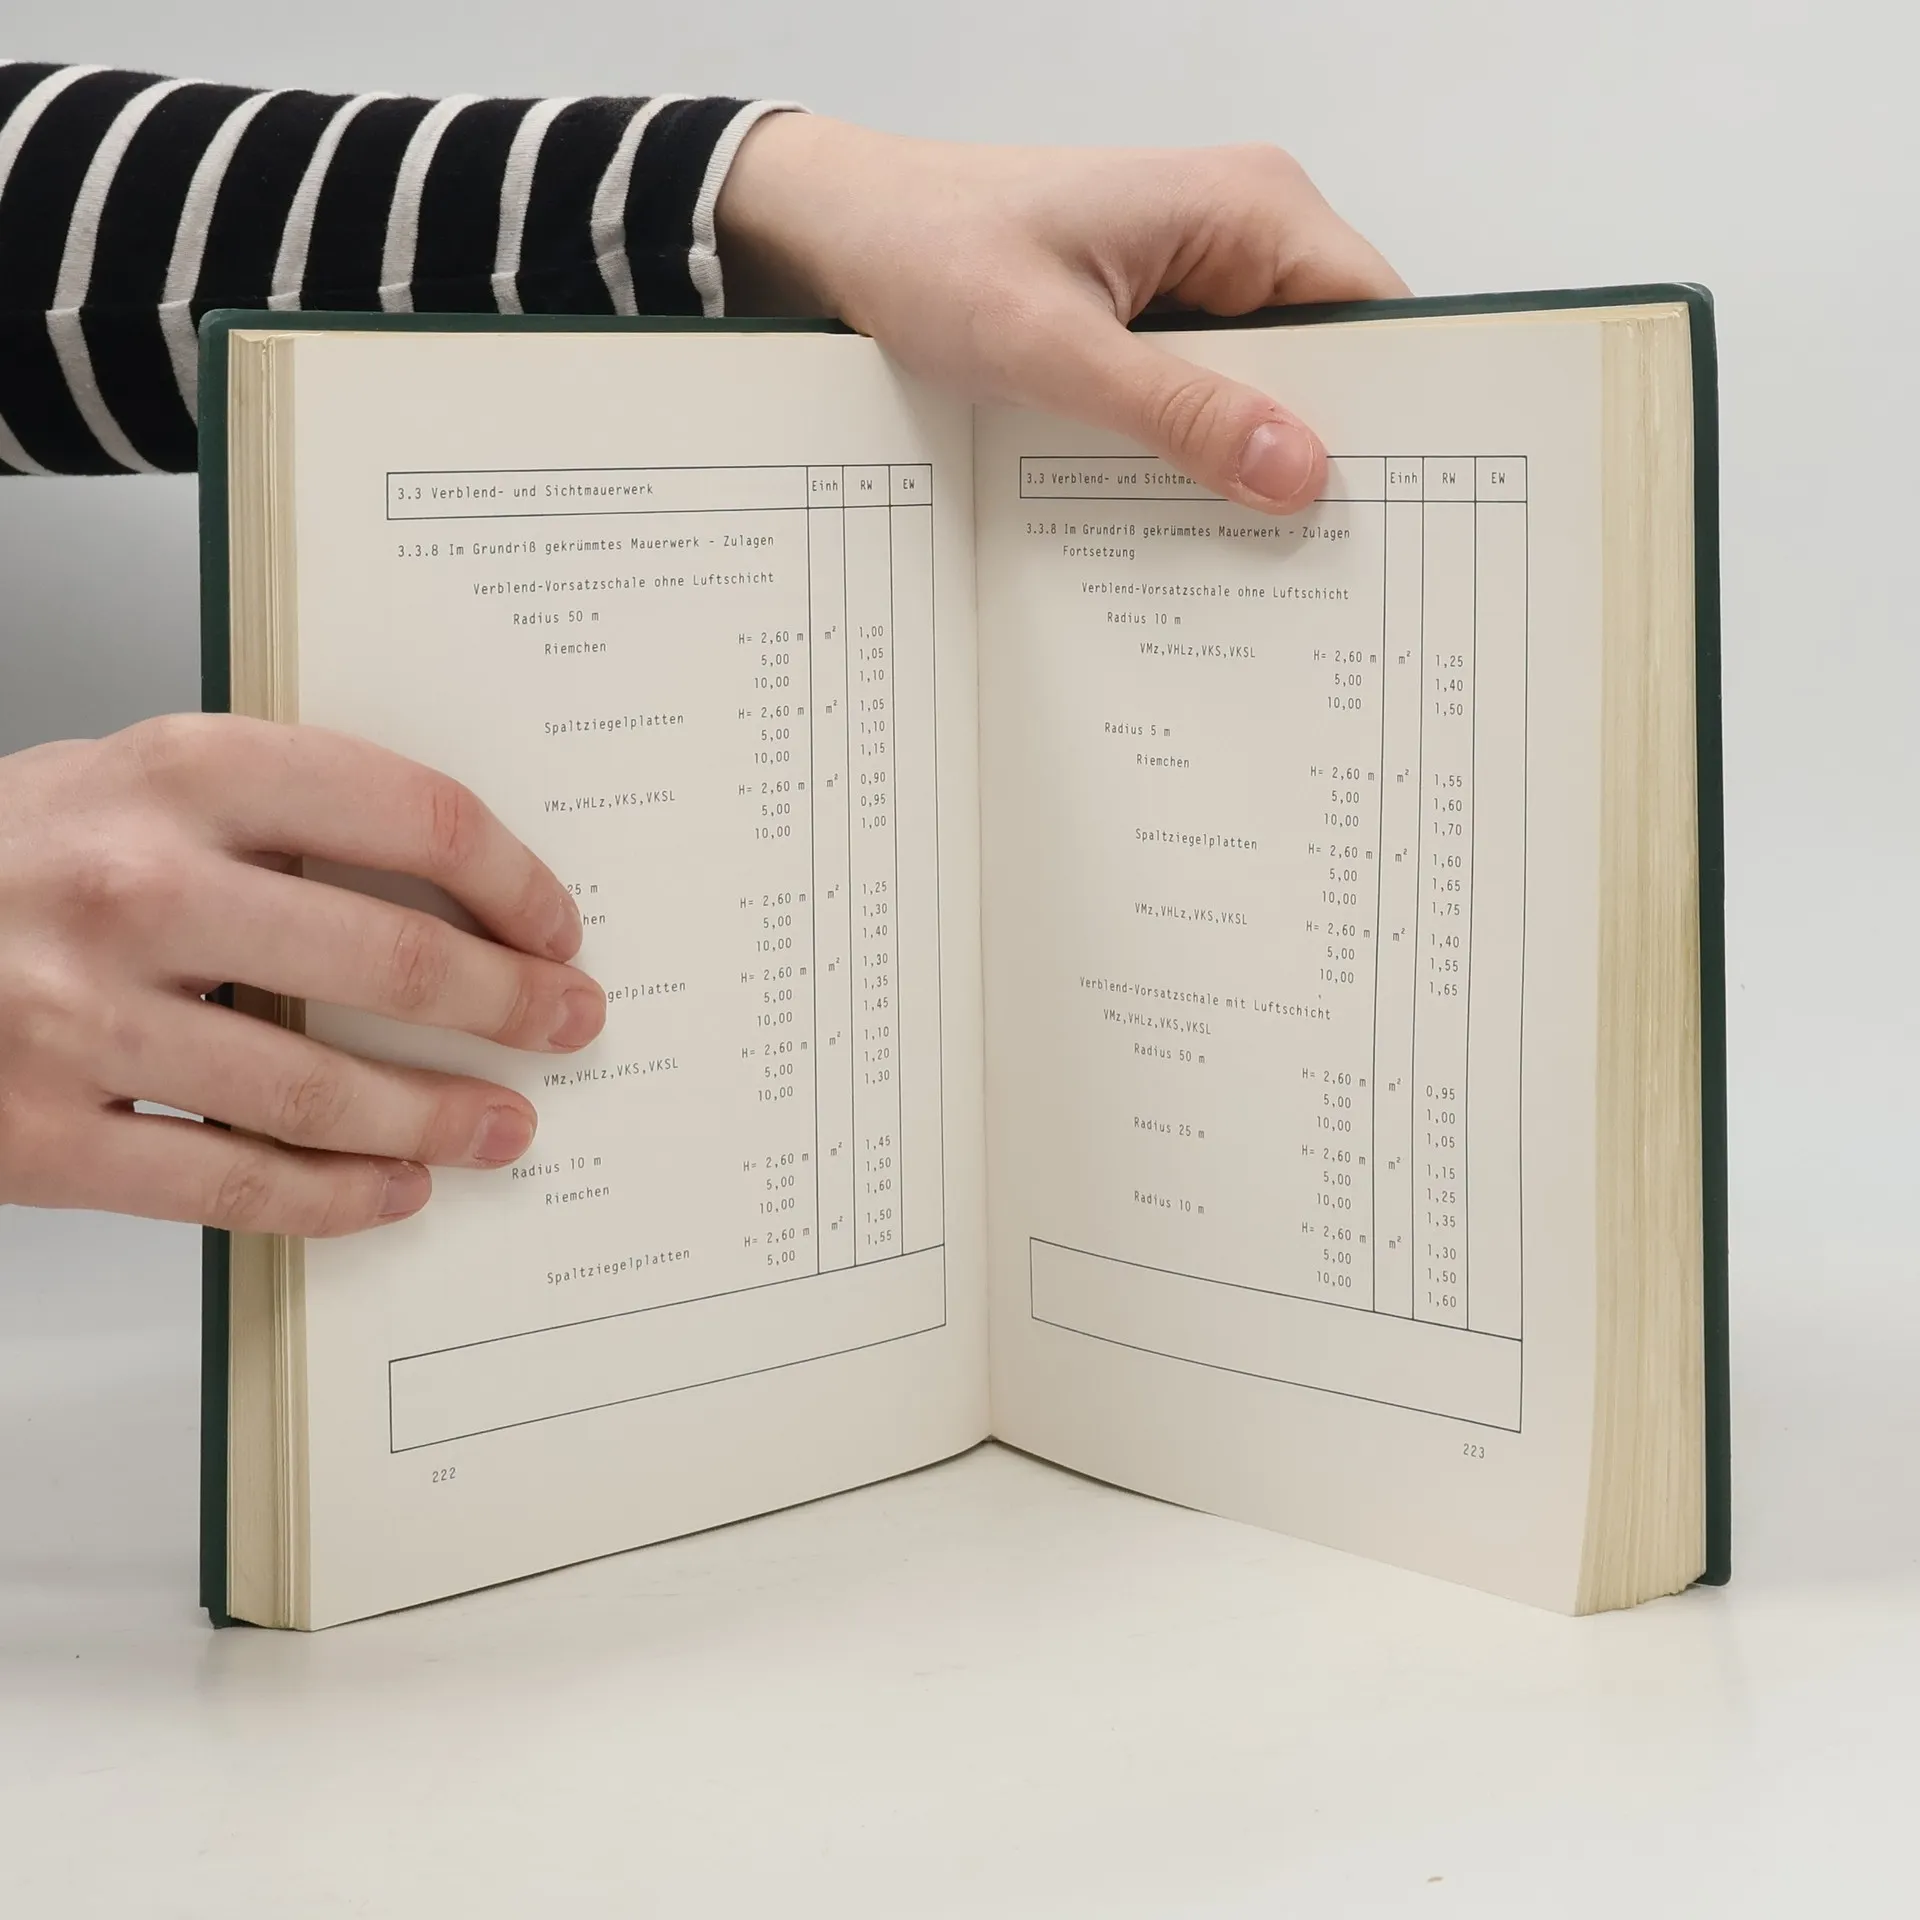 3.3 Verblend- und Sichtmauerwerk Einh RW EW
3.3.8 Im Grundriß gekrümmtes Mauerwerk - Zulagen
Verblend-Vorsatzschale ohne Luftschicht
Radius 50 m
Riemchen H= 2,60 m m² 1,00
5,00 1,05
10,00 1,10
Spaltziegelplatten H= 2,60 m m² 1,05
5,00 1,10
10,00 1,15
VMz,VHLz,VKS,VKSL H= 2,60 m m² 0,90
5,00 0,95
10,00 1,00
25 m
H= 2,60 m m² 1,25
5,00 1,30
10,00 1,40
H= 2,60 m m² 1,30
5,00 1,35
10,00 1,45
VMz,VHLz,VKS,VKSL H= 2,60 m m² 1,10
5,00 1,20
10,00 1,30
Radius 10 m
Riemchen H= 2,60 m m² 1,45
5,00 1,50
10,00 1,60
Spaltziegelplatten H= 2,60 m m² 1,50
5,00 1,55
222
3.3 Verblend- und Einh RW EW
3.3.8 Im Grundriß gekrümmtes Mauerwerk - Zulagen
Fortsetzung
Verblend-Vorsatzschale ohne Luftschicht
Radius 10 m
VMz,VHLz,VKS,VKSL H= 2,60 m m² 1,25
5,00 1,40
10,00 1,50
Radius 5 m
Riemchen H= 2,60 m m² 1,55
5,00 1,60
10,00 1,70
Spaltziegelplatten H= 2,60 m m² 1,60
5,00 1,65
10,00 1,75
VMz,VHLz,VKS,VKSL H= 2,60 m m² 1,40
5,00 1,55
10,00 1,65
Verblend-Vorsatzschale mit Luftschicht
VMz,VHLz,VKS,VKSL
Radius 50 m H= 2,60 m m² 0,95
5,00 1,00
10,00 1,05
Radius 25 m H= 2,60 m m² 1,15
5,00 1,25
10,00 1,35
Radius 10 m H= 2,60 m m² 1,30
5,00 1,50
10,00 1,60
223